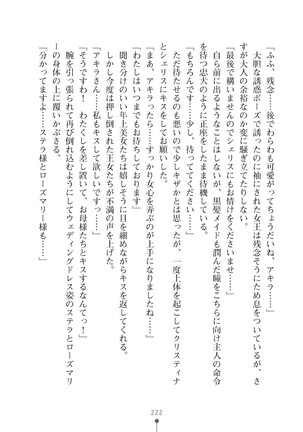 「ふふ、残念……後でわらわも可愛がってちょうだいね、アキラ」
　大胆な誘惑ポーズで誘ったのに袖にされた女王は残念そうにため息をついているが、さ
すが大人の余裕なのか騒ぎ立てたりしない。
「最後で構いませんのでシェリスにもお情けをくださいませ……」
　自ら前に出るようなことはしないが、黒髪メイドも潤んだ瞳をこちらに向け主人の命令
を待つ忠犬のように正座をしたまま待機している。
「もちろんです、少し、待っててください……」
　ただ待たせるのも悪いので少しキザかとは思ったが、一度上体を起こしてクリスティナ
とシェリスにキスをしてお願いした。
「まあ、アキラったら……すっかり女心を弄ぶのが上手になりましたね……」
「わたしはいつまでもお待ちしております」
　聞き分けのいい年上美女たちは嬉しそうに目を細めながらキスを返してくれる。
　しかし今度は押し倒されたままの王女たちが不満の声を上げた。
「アキラさん……私もキスして欲しいですっ……」
「そうですわ！　わたくしを差し置いて、お母様たちとキスするなんてっ！」
　腕を引っ張られて再び倒れ込むようにしてウェディングドレス姿のステラとローズマリ
ーの身体の上に覆いかぶさる。
「分かってますよ……ステラ様とローズマリー様も……」
222